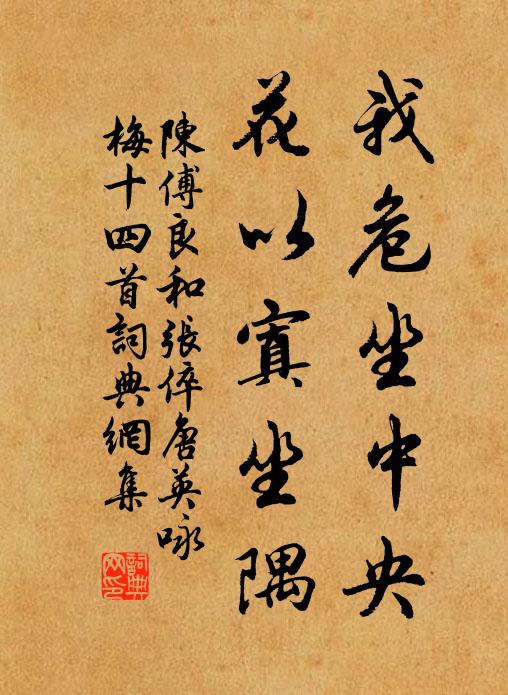 我危坐中央
花以寘坐隅
陳傅良和張倅唐英咏
梅十四首詞典網集
詞典网印